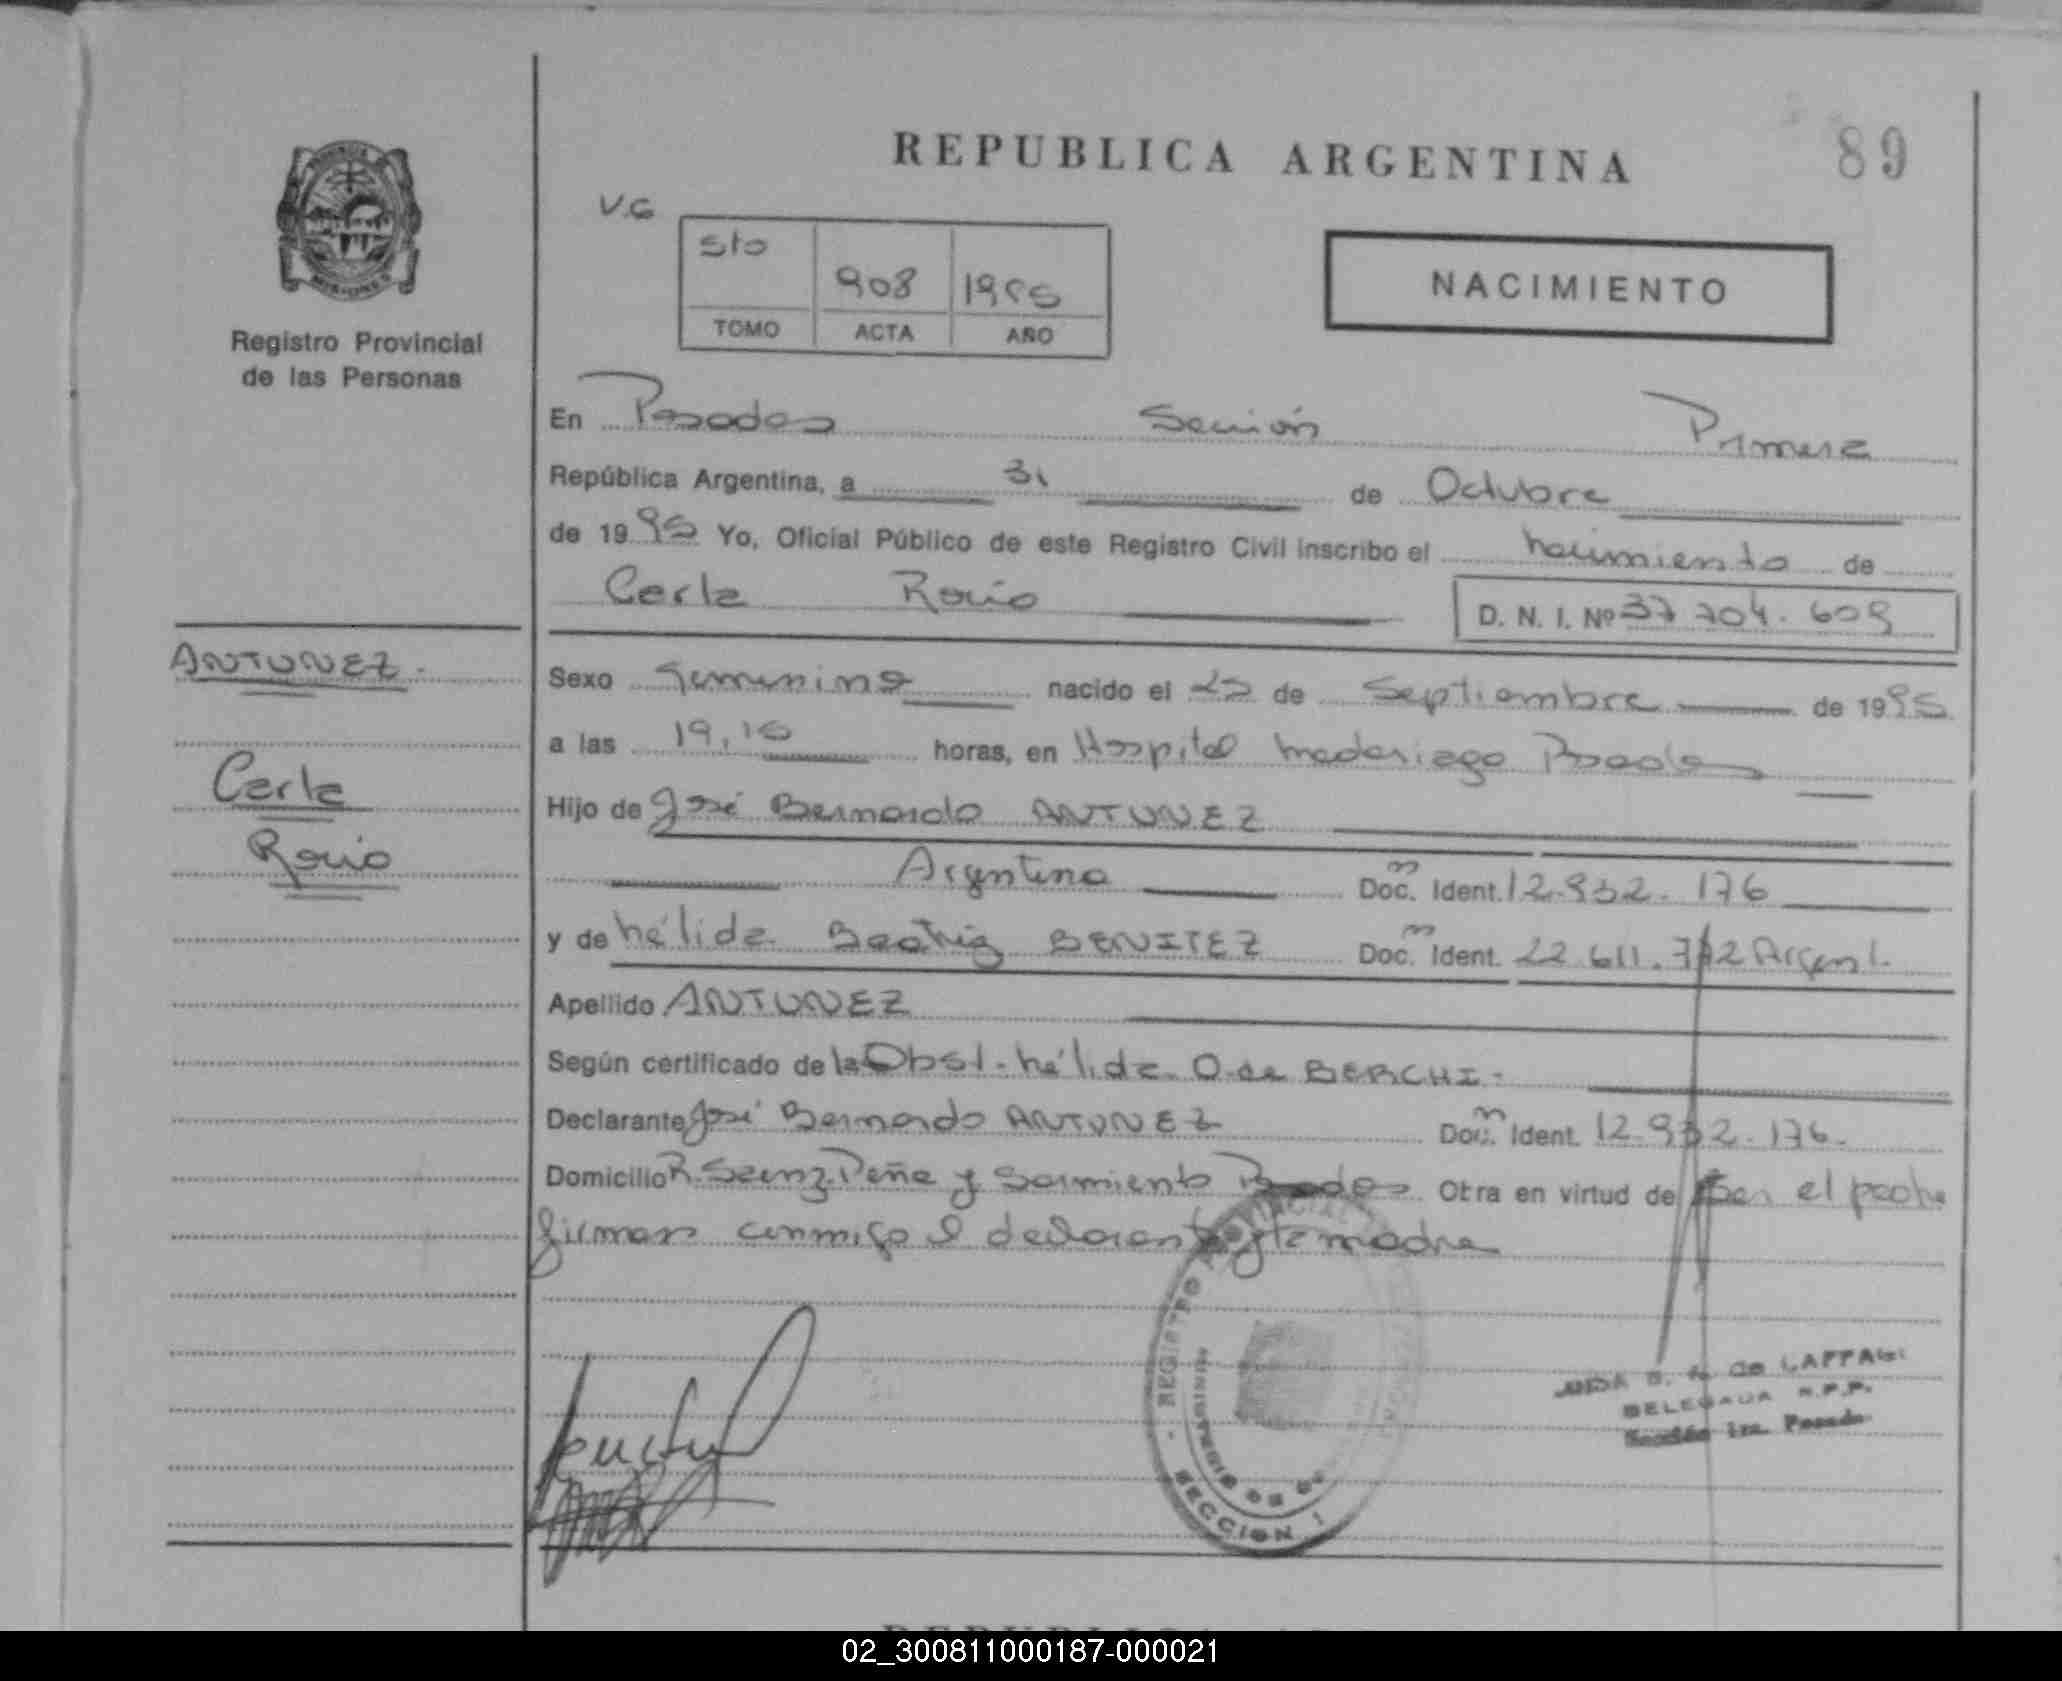 REPUBLICA ARGENTINA
89
V.G
5to 908 1995
TOMO ACTA AÑO
NACIMIENTO
Registro Provincial
de las Personas
En Posadas Sección Primera
República Argentina, a 31 de Octubre
de 1995 Yo, Oficial Público de este Registro Civil inscribo el nacimiento de
Carla Rocío D. N. I. Nº 37 704.609
ANTUNEZ.
Carla
Rocio
Sexo Femenino nacido el de Septiembre de 1995
a las 19,10 horas, en Hospital Madariaga Posadas
Hijo de José Bernardo ANTUNEZ
Argentino Doc. Ident. 12.932.176
y de Nélida Beatriz BENITEZ Doc. Ident. 22.611.772 Argent.
Apellido ANTUNEZ
Según certificado de la Obst. Nélida O. de BERCHI.
Declarante José Bernardo ANTUNEZ Doc. Ident. 12.932.176.
Domicilio R. Saenz Peña y Sarmiento Posadas Otra en virtud de ser el padre
firman conmigo el declarante y la madre
REGISTRO PROVINCIAL
MINISTERIO DE
SECCION 1
DELEGADA R.P.P.
Sección 1ra. Posadas
02_300811000187-000021